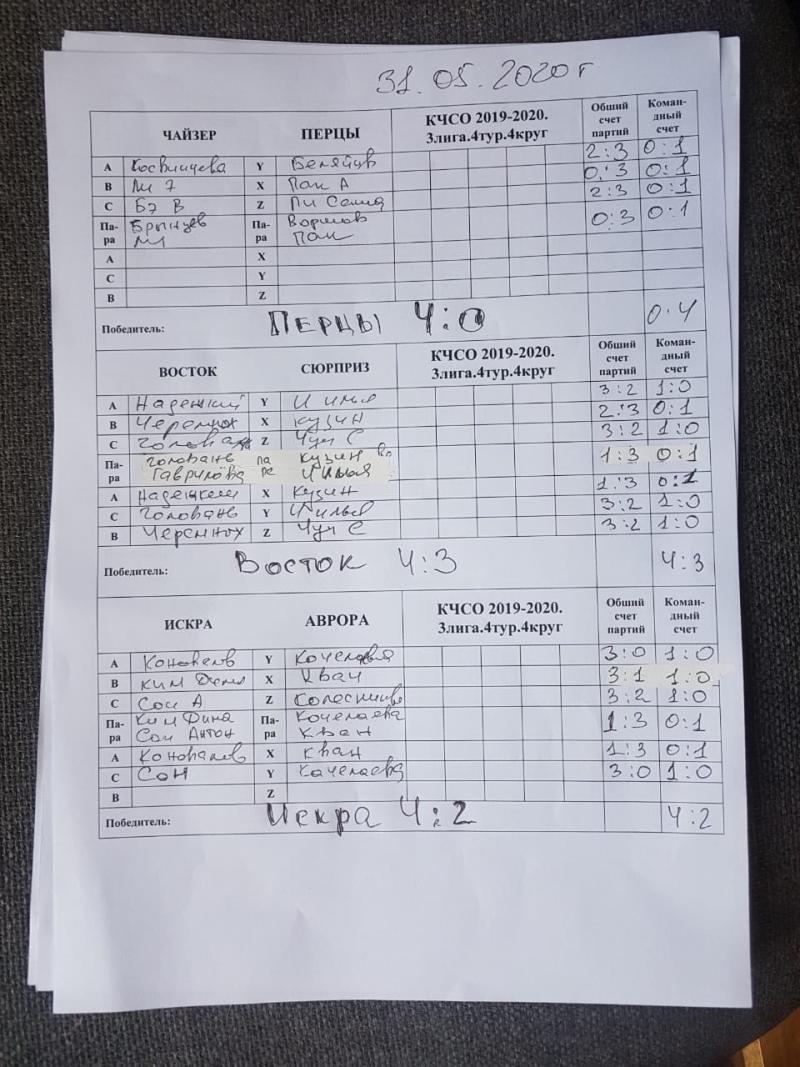 31.05.2020г
ЧАЙЗЕР ПЕРЦЫ КЧСО 2019-2020. 3лига.4тур.4круг Общий счет партий Коман-дный счет
A Косвинцева Y Беляйцв 2:3 0:1
B Ли Э X Пак А 0:3 0:1
C Бэ В Z Ли Семид 2:3 0:1
Па-ра Брынцев Па-ра Вормов 0:3 0:1
Ли Пак
A X
C Y
B Z
Победитель: ПЕРЦЫ 4:0 0:4
ВОСТОК СЮРПРИЗ КЧСО 2019-2020. 3лига.4тур.4круг Общий счет партий Коман-дный счет
A Y 3:2 1:0
B Черемных X Кузин 2:3 0:1
C Головань Z Чуч С 3:2 1:0
Па-ра Головань па Кузин 1:3 0:1
Гаврилова ра
A X Кузин 1:3 0:1
C Головань Y 3:2 1:0
B Черемных Z Чуч С 3:2 1:0
Победитель: ВОСТОК 4:3 4:3
ИСКРА АВРОРА КЧСО 2019-2020. 3лига.4тур.4круг Общий счет партий Коман-дный счет
A Коновалов Y Кочелаева 3:0 1:0
B Ким Дина X Кван 3:1 1:0
C Сон А Z 3:2 1:0
Па-ра Ким Дина Па-ра Кочелаева 1:3 0:1
Сон Антон Кван
A Коновалов X Кван 1:3 0:1
C Сон Y Кочелаева 3:0 1:0
B Z
Победитель: Искра 4:2 4:2